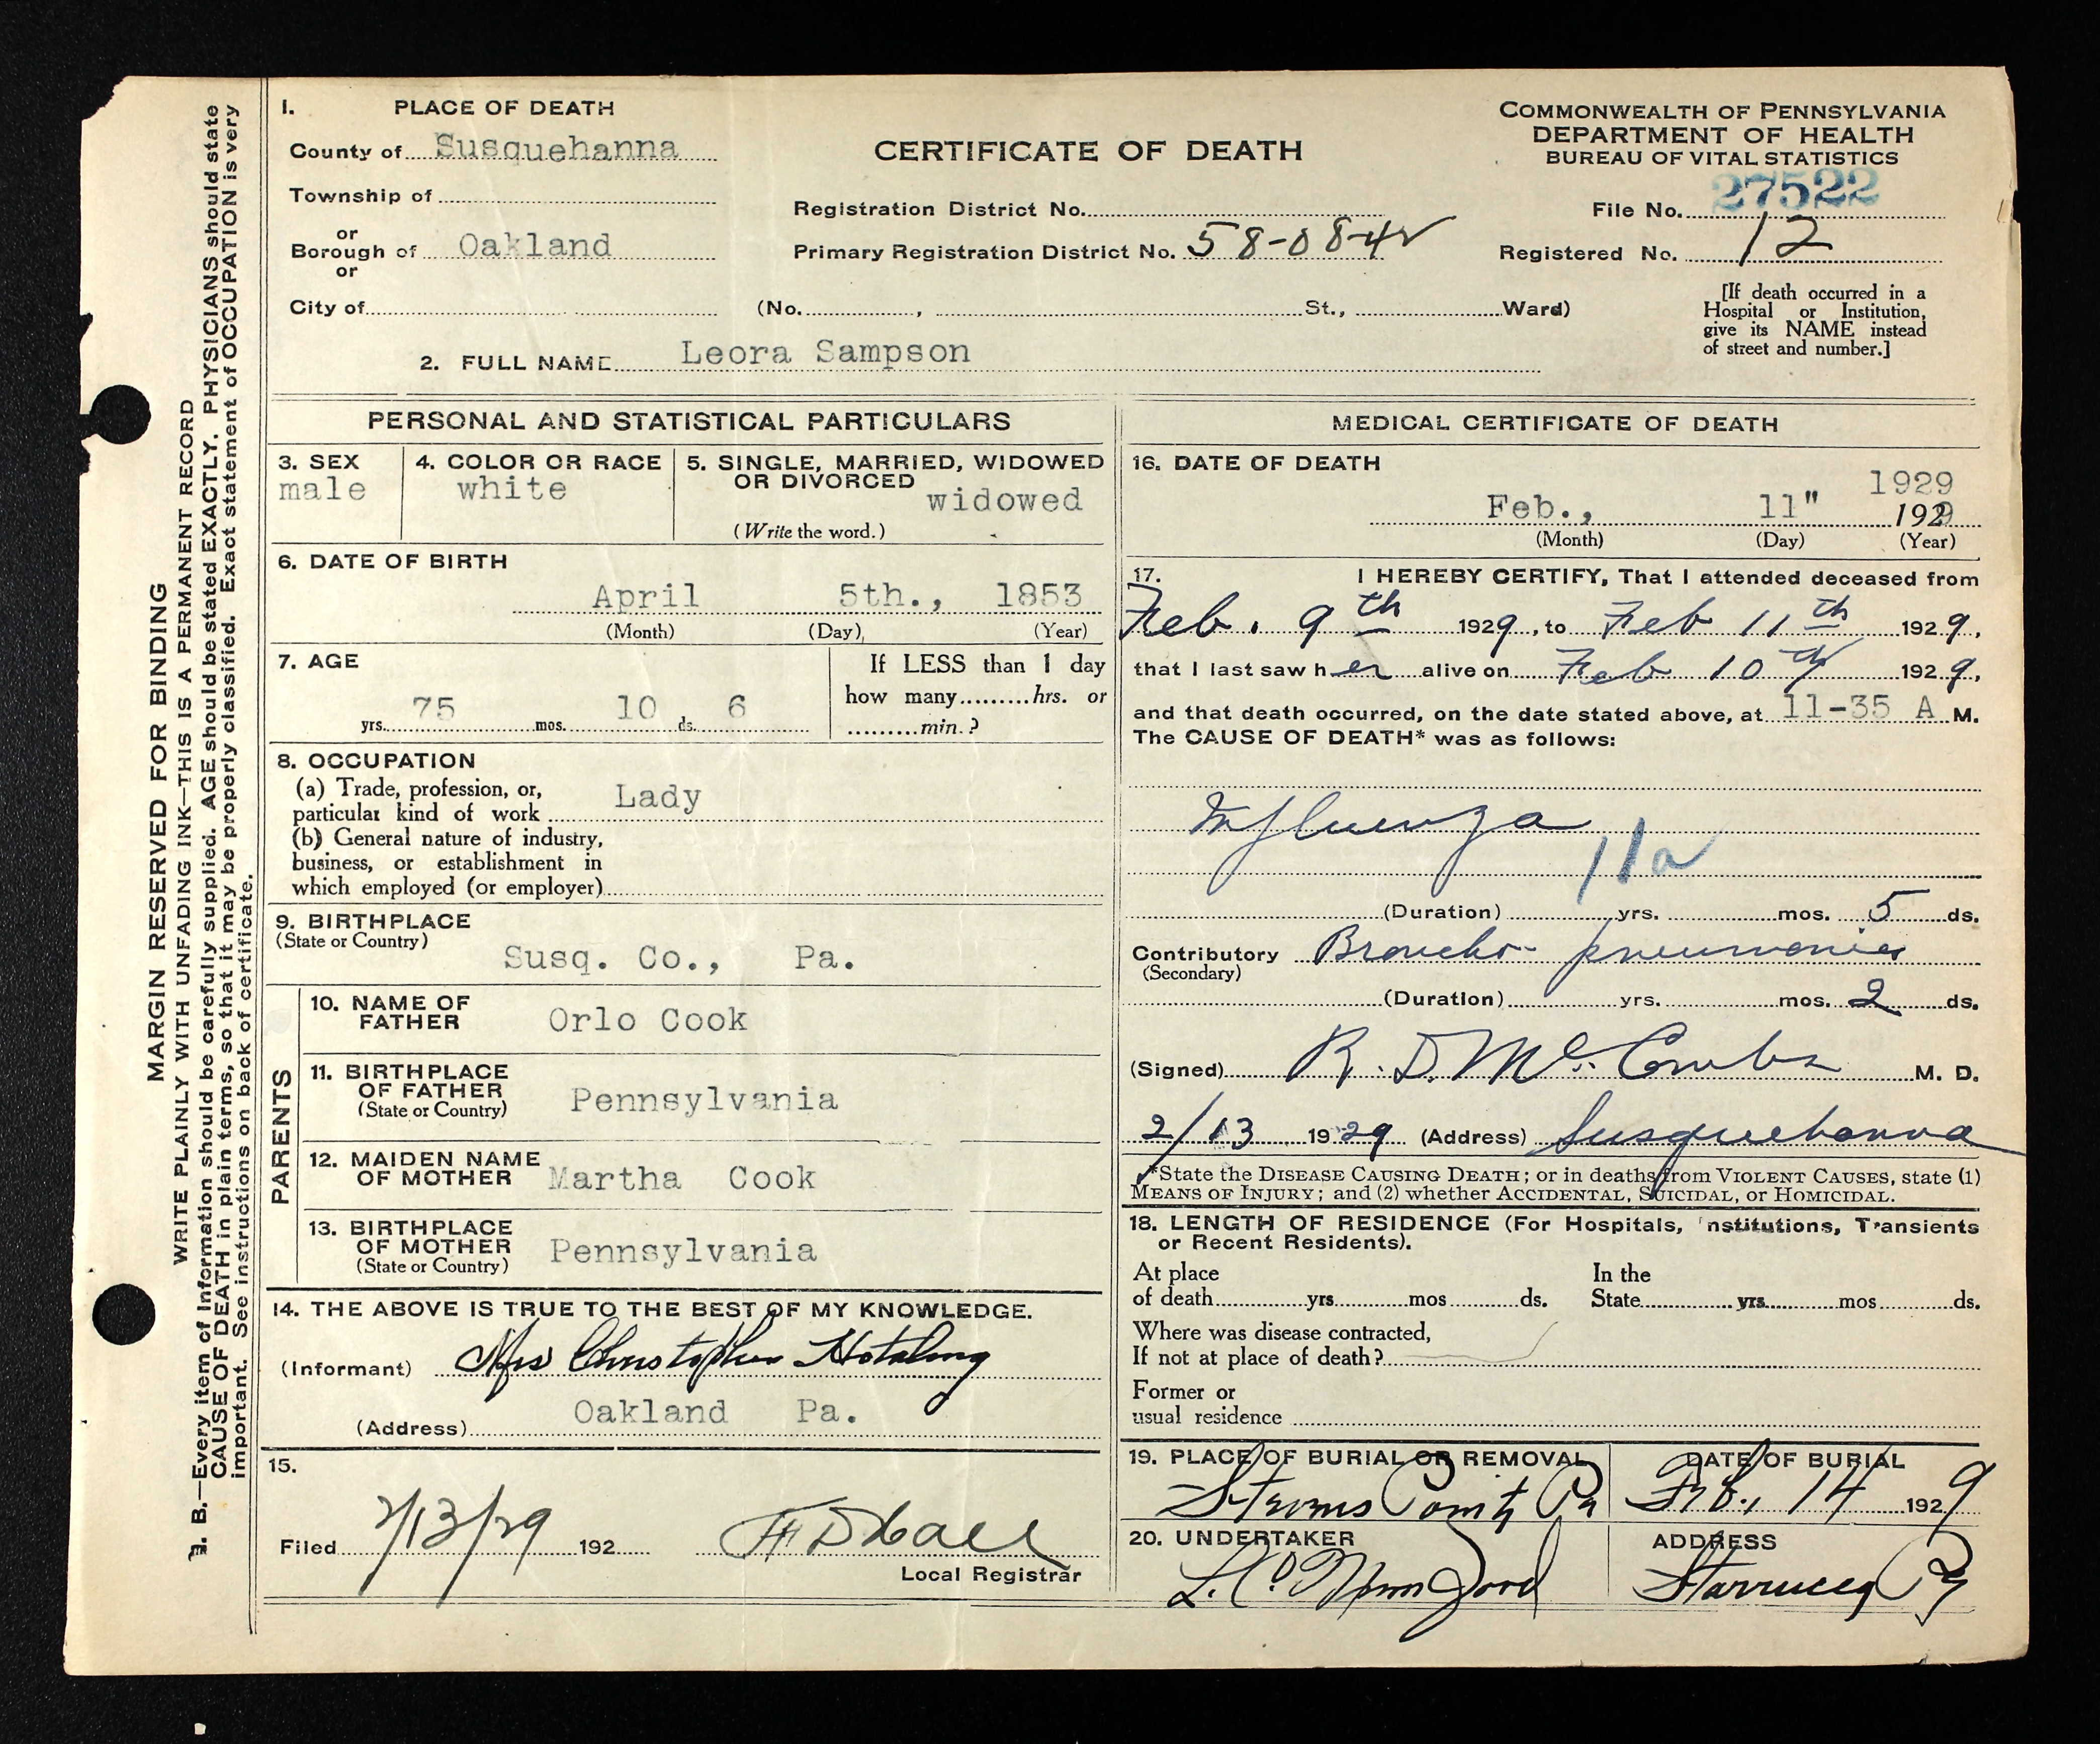 1. PLACE OF DEATH
County of Susquehanna
Township of
or
Borough of Oakland
or
City of
CERTIFICATE OF DEATH
Registration District No.
Primary Registration District No. 58-08-42
(No. , St., Ward)
COMMONWEALTH OF PENNSYLVANIA
DEPARTMENT OF HEALTH
BUREAU OF VITAL STATISTICS
File No. 27522
Registered No. 12
[If death occurred in a
Hospital or Institution,
give its NAME instead
of street and number.]
2. FULL NAME Leora Sampson
PERSONAL AND STATISTICAL PARTICULARS
3. SEX
male
4. COLOR OR RACE
white
5. SINGLE, MARRIED, WIDOWED
OR DIVORCED
widowed
(Write the word.)
6. DATE OF BIRTH
April 5th., 1853
(Month) (Day) (Year)
7. AGE
75 yrs. 10 mos. 6 ds.
If LESS than 1 day
how many hrs. or
min.?
8. OCCUPATION
(a) Trade, profession, or,
particular kind of work Lady
(b) General nature of industry,
business, or establishment in
which employed (or employer)
9. BIRTHPLACE
(State or Country)
Susq. Co., Pa.
PARENTS
10. NAME OF
FATHER Orlo Cook
11. BIRTHPLACE
OF FATHER
(State or Country) Pennsylvania
12. MAIDEN NAME
OF MOTHER Martha Cook
13. BIRTHPLACE
OF MOTHER
(State or Country) Pennsylvania
14. THE ABOVE IS TRUE TO THE BEST OF MY KNOWLEDGE.
(Informant) Mrs Christopher Hotaling
(Address) Oakland Pa.
15.
Filed 2/13/29 192
Local Registrar
MEDICAL CERTIFICATE OF DEATH
16. DATE OF DEATH
1929
Feb., 11" 1929
(Month) (Day) (Year)
17. I HEREBY CERTIFY, That I attended deceased from
Feb. 9th 1929, to Feb 11th 1929,
that I last saw her alive on Feb 10th 1929,
and that death occurred, on the date stated above, at 11-35 A M.
The CAUSE OF DEATH* was as follows:
Influenza
11a
(Duration) yrs. mos. 5 ds.
Contributory Broncho-pneumonia
(Secondary)
(Duration) yrs. mos. 2 ds.
(Signed) R. D. Mc M. D.
2/13 1929 (Address) Susquehanna
*State the DISEASE CAUSING DEATH; or in deaths from VIOLENT CAUSES, state (1)
MEANS OF INJURY; and (2) whether ACCIDENTAL, SUICIDAL, or HOMICIDAL.
18. LENGTH OF RESIDENCE (For Hospitals, Institutions, Transients
or Recent Residents).
At place
of death yrs mos ds.
In the
State yrs. mos ds.
Where was disease contracted,
If not at place of death?
Former or
usual residence
19. PLACE OF BURIAL OR REMOVAL
Pa
DATE OF BURIAL
Feb., 14 1929
20. UNDERTAKER
ADDRESS
Starrucca Pa
MARGIN RESERVED FOR BINDING
WRITE PLAINLY WITH UNFADING INK—THIS IS A PERMANENT RECORD
N. B.—Every item of information should be carefully supplied. AGE should be stated EXACTLY. PHYSICIANS should state
CAUSE OF DEATH in plain terms, so that it may be properly classified. Exact statement of OCCUPATION is very
important. See instructions on back of certificate.